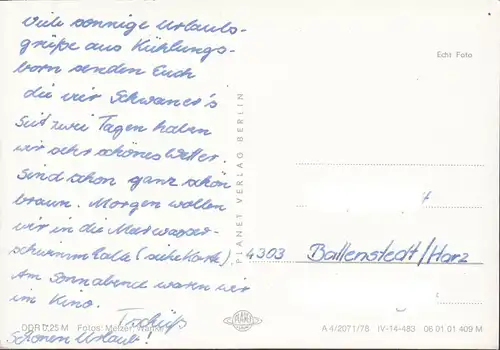 Viele sonnige Urlaubs-
grüße aus Kühlungs-
born senden Euch
die vier Schwaner's
Seit zwei Tagen haben
wir sehr schönes Wetter.
Sind schon ganz schön
braun. Morgen wollen
wir in die Meerwasser-
schwimmhalle (siehe Karte)
Am Sonnabend waren wir
im Kino.
Tschüß
Schönen Urlaub!
Echt Foto
PLANET VERLAG BERLIN
4303 Ballenstedt/Harz
DDR 0,25 M Fotos: Melzer,
PLANET
A 4/2071/78 IV-14-483 06 01 01 409 M